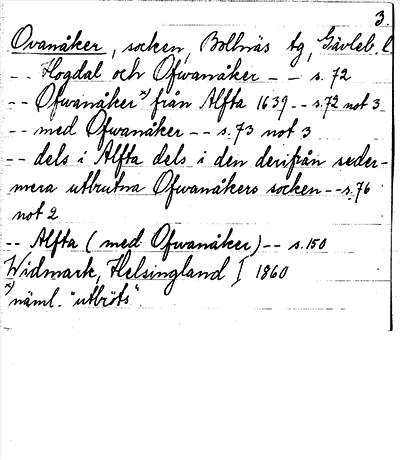 3.
Ovanåker, socken, Bollnäs tg, Gävleb. l
-- Hogdal och Ofwanåker -- s. 72
-- Ofwanåker x) från Alfta 1639 -- s. 72 not 3
-- med Ofwanåker -- s. 73 not 3
-- dels i Alfta dels i den derifrån seder-
mera utbrutna Ofwanåkers socken -- s. 76
not 2
-- Alfta (med Ofwanåker) -- s. 150
Widmark, Helsingland I 1860
x) näml. "utbröts"